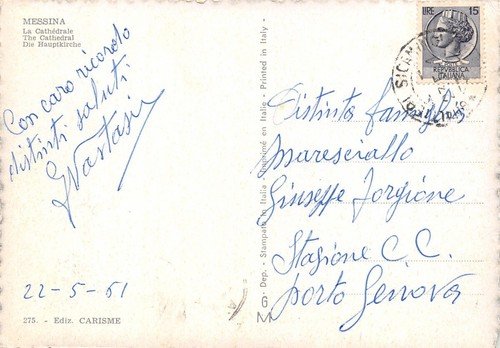 MESSINA
La Cathédrale
The Cathedral
Die Hauptkirche
Con caro ricordo
distinti saluti
22-5-61
275. - Ediz. CARISME
Dep. - Stampato in Italia - Imprimé en Italie - Printed in Italy -
6
M
LIRE 15
REPVBBLICA
ITALIANA
Distinta famiglia
Maresciallo
Giuseppe Forgione
Stazione C. C.
Porto Genova